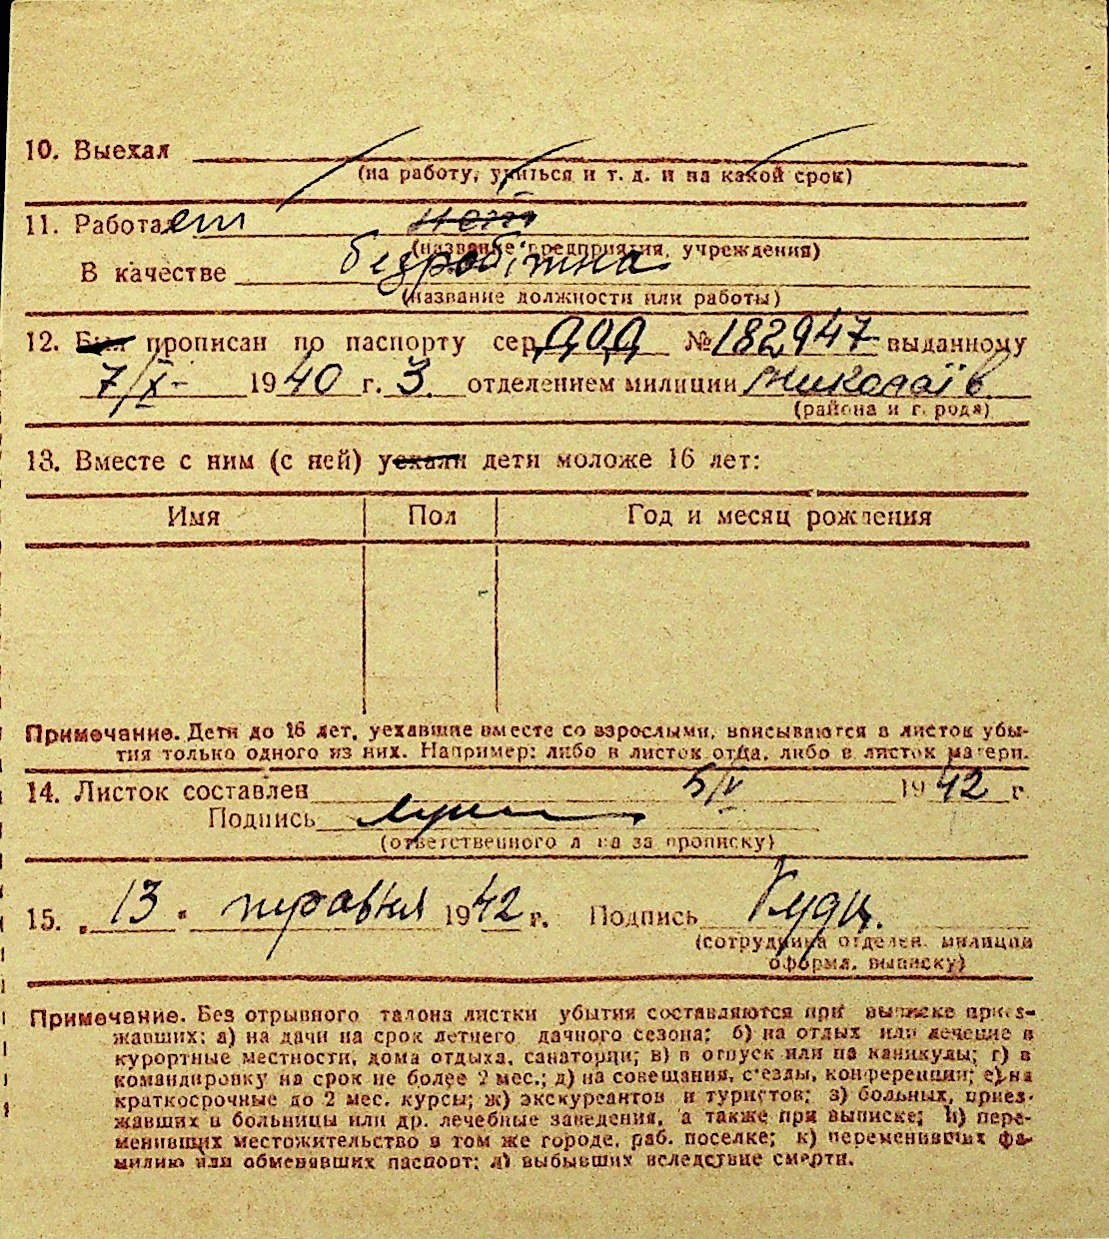 10. Выехал
(на работу, учиться и т. д. и на какой срок)
11. Работает нет
(название предприятия, учреждения)
безробітна
В качестве
(название должности или работы)
12. Был прописан по паспорту сер. № 182947 выданному
7/X- 1940 г. 3. отделением милиции Миколаїв
(района и города)
13. Вместе с ним (с ней) уехали дети моложе 16 лет:
Имя Пол Год и месяц рождения
Примечание. Дети до 16 лет, уехавшие вместе со взрослыми, вписываются в листок убы-
тия только одного из них. Например: либо в листок отца, либо в листок матери.
14. Листок составлен 5/V 1942 г.
Подпись
(ответственного лица за прописку)
15. „ 13 " травня 1942 г. Подпись
(сотрудника отделен. милиции
оформл. выписку)
Примечание. Без отрывного талона листки убытия составляются при выписке приез-
жавших: а) на дачи на срок летнего дачного сезона; б) на отдых или лечение в
курортные местности, дома отдыха, санатории; в) в отпуск или на каникулы; г) в
командировку на срок не более 2 мес.; д) на совещания, с'езды, конференции; е) на
краткосрочные до 2 мес. курсы; ж) экскурсантов и туристов; з) больных, приез-
жавших в больницы или др. лечебные заведения, а также при выписке; и) пере-
менивших местожительство в том же городе, раб. поселке; к) переменивших фа-
милию или обменявших паспорт; л) выбывших вследствие смерти.